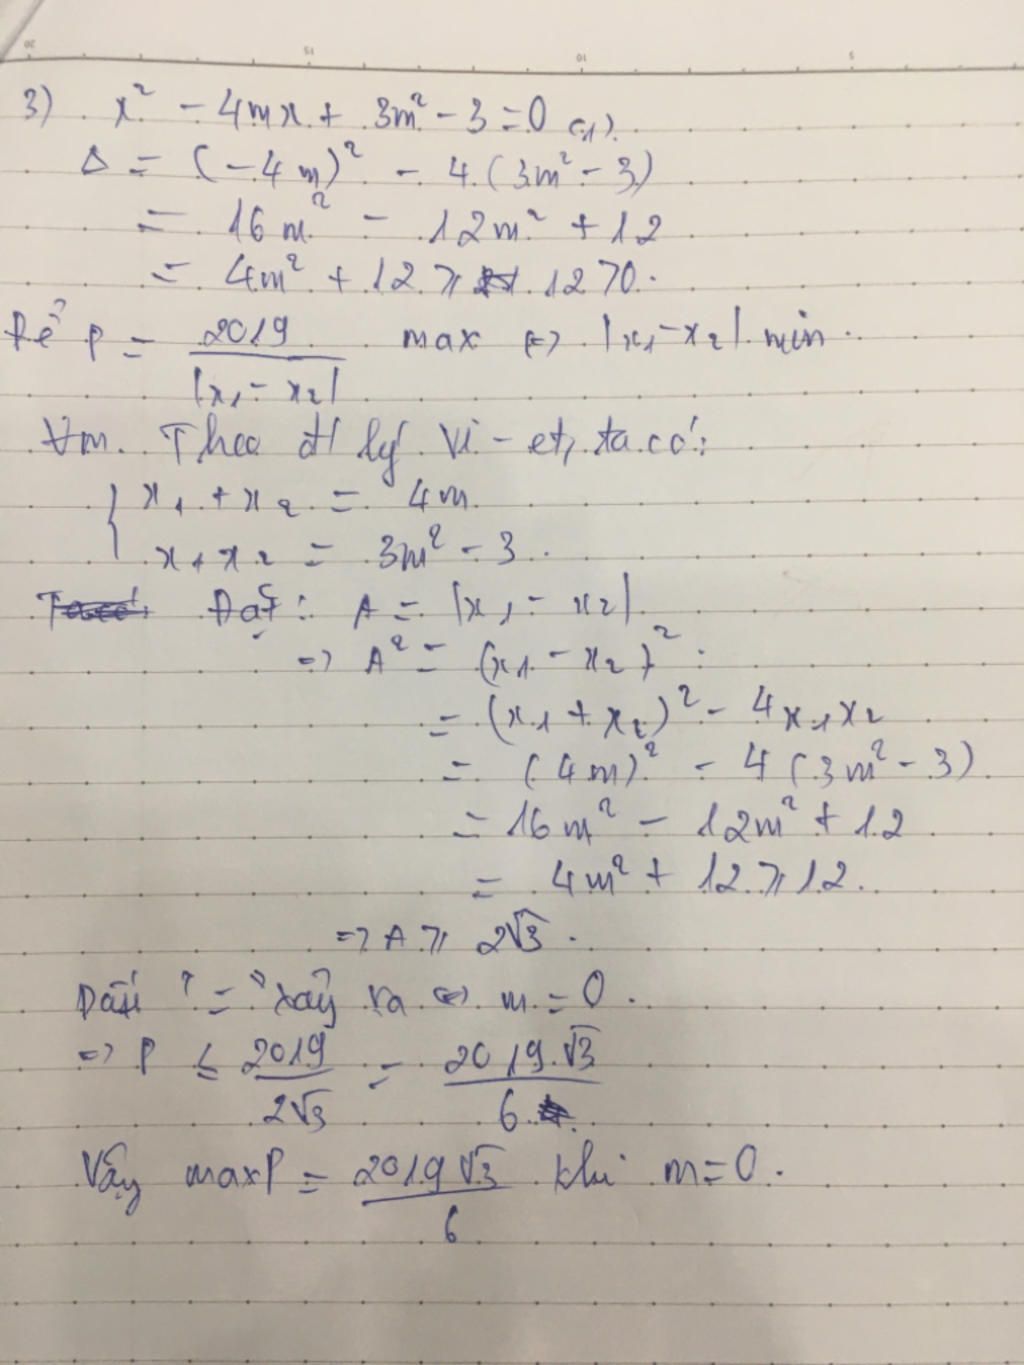 3) x² - 4mx + 3m² - 3 = 0 (1).
Δ = (-4m)² - 4(3m² - 3)
= 16m² - 12m² + 12
= 4m² + 12 ≥ 12 > 0.
Để P = 2019/|x₁ - x₂| max <=> |x₁ - x₂| min.
∀m. Theo đl lý Vi-et, ta có:
{ x₁ + x₂ = 4m
x₁x₂ = 3m² - 3.
Đặt: A = |x₁ - x₂|
=> A² = (x₁ - x₂)²
= (x₁ + x₂)² - 4x₁x₂
= (4m)² - 4(3m² - 3).
= 16m² - 12m² + 12
= 4m² + 12 ≥ 12.
=> A ≥ 2√3.
Dấu "=" xảy ra <=> m = 0.
=> P ≤ 2019/2√3 = 2019.√3/6
Vậy maxP = 2019√3/6 khi m = 0.
20 15 10 5